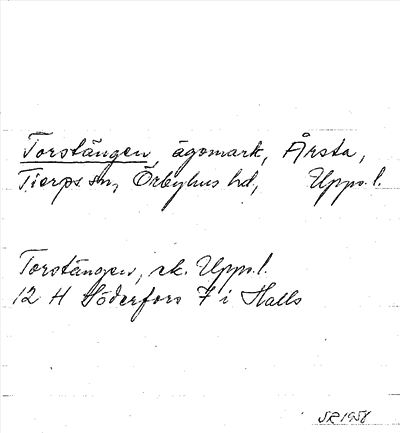 Torstängen, ägomark, Årsta,
Tierps sn, Örbyhus hd, Upps. l.
Torstängen, ek. Upps. l.
12 H Söderfors 7 i Halls
SR 1958